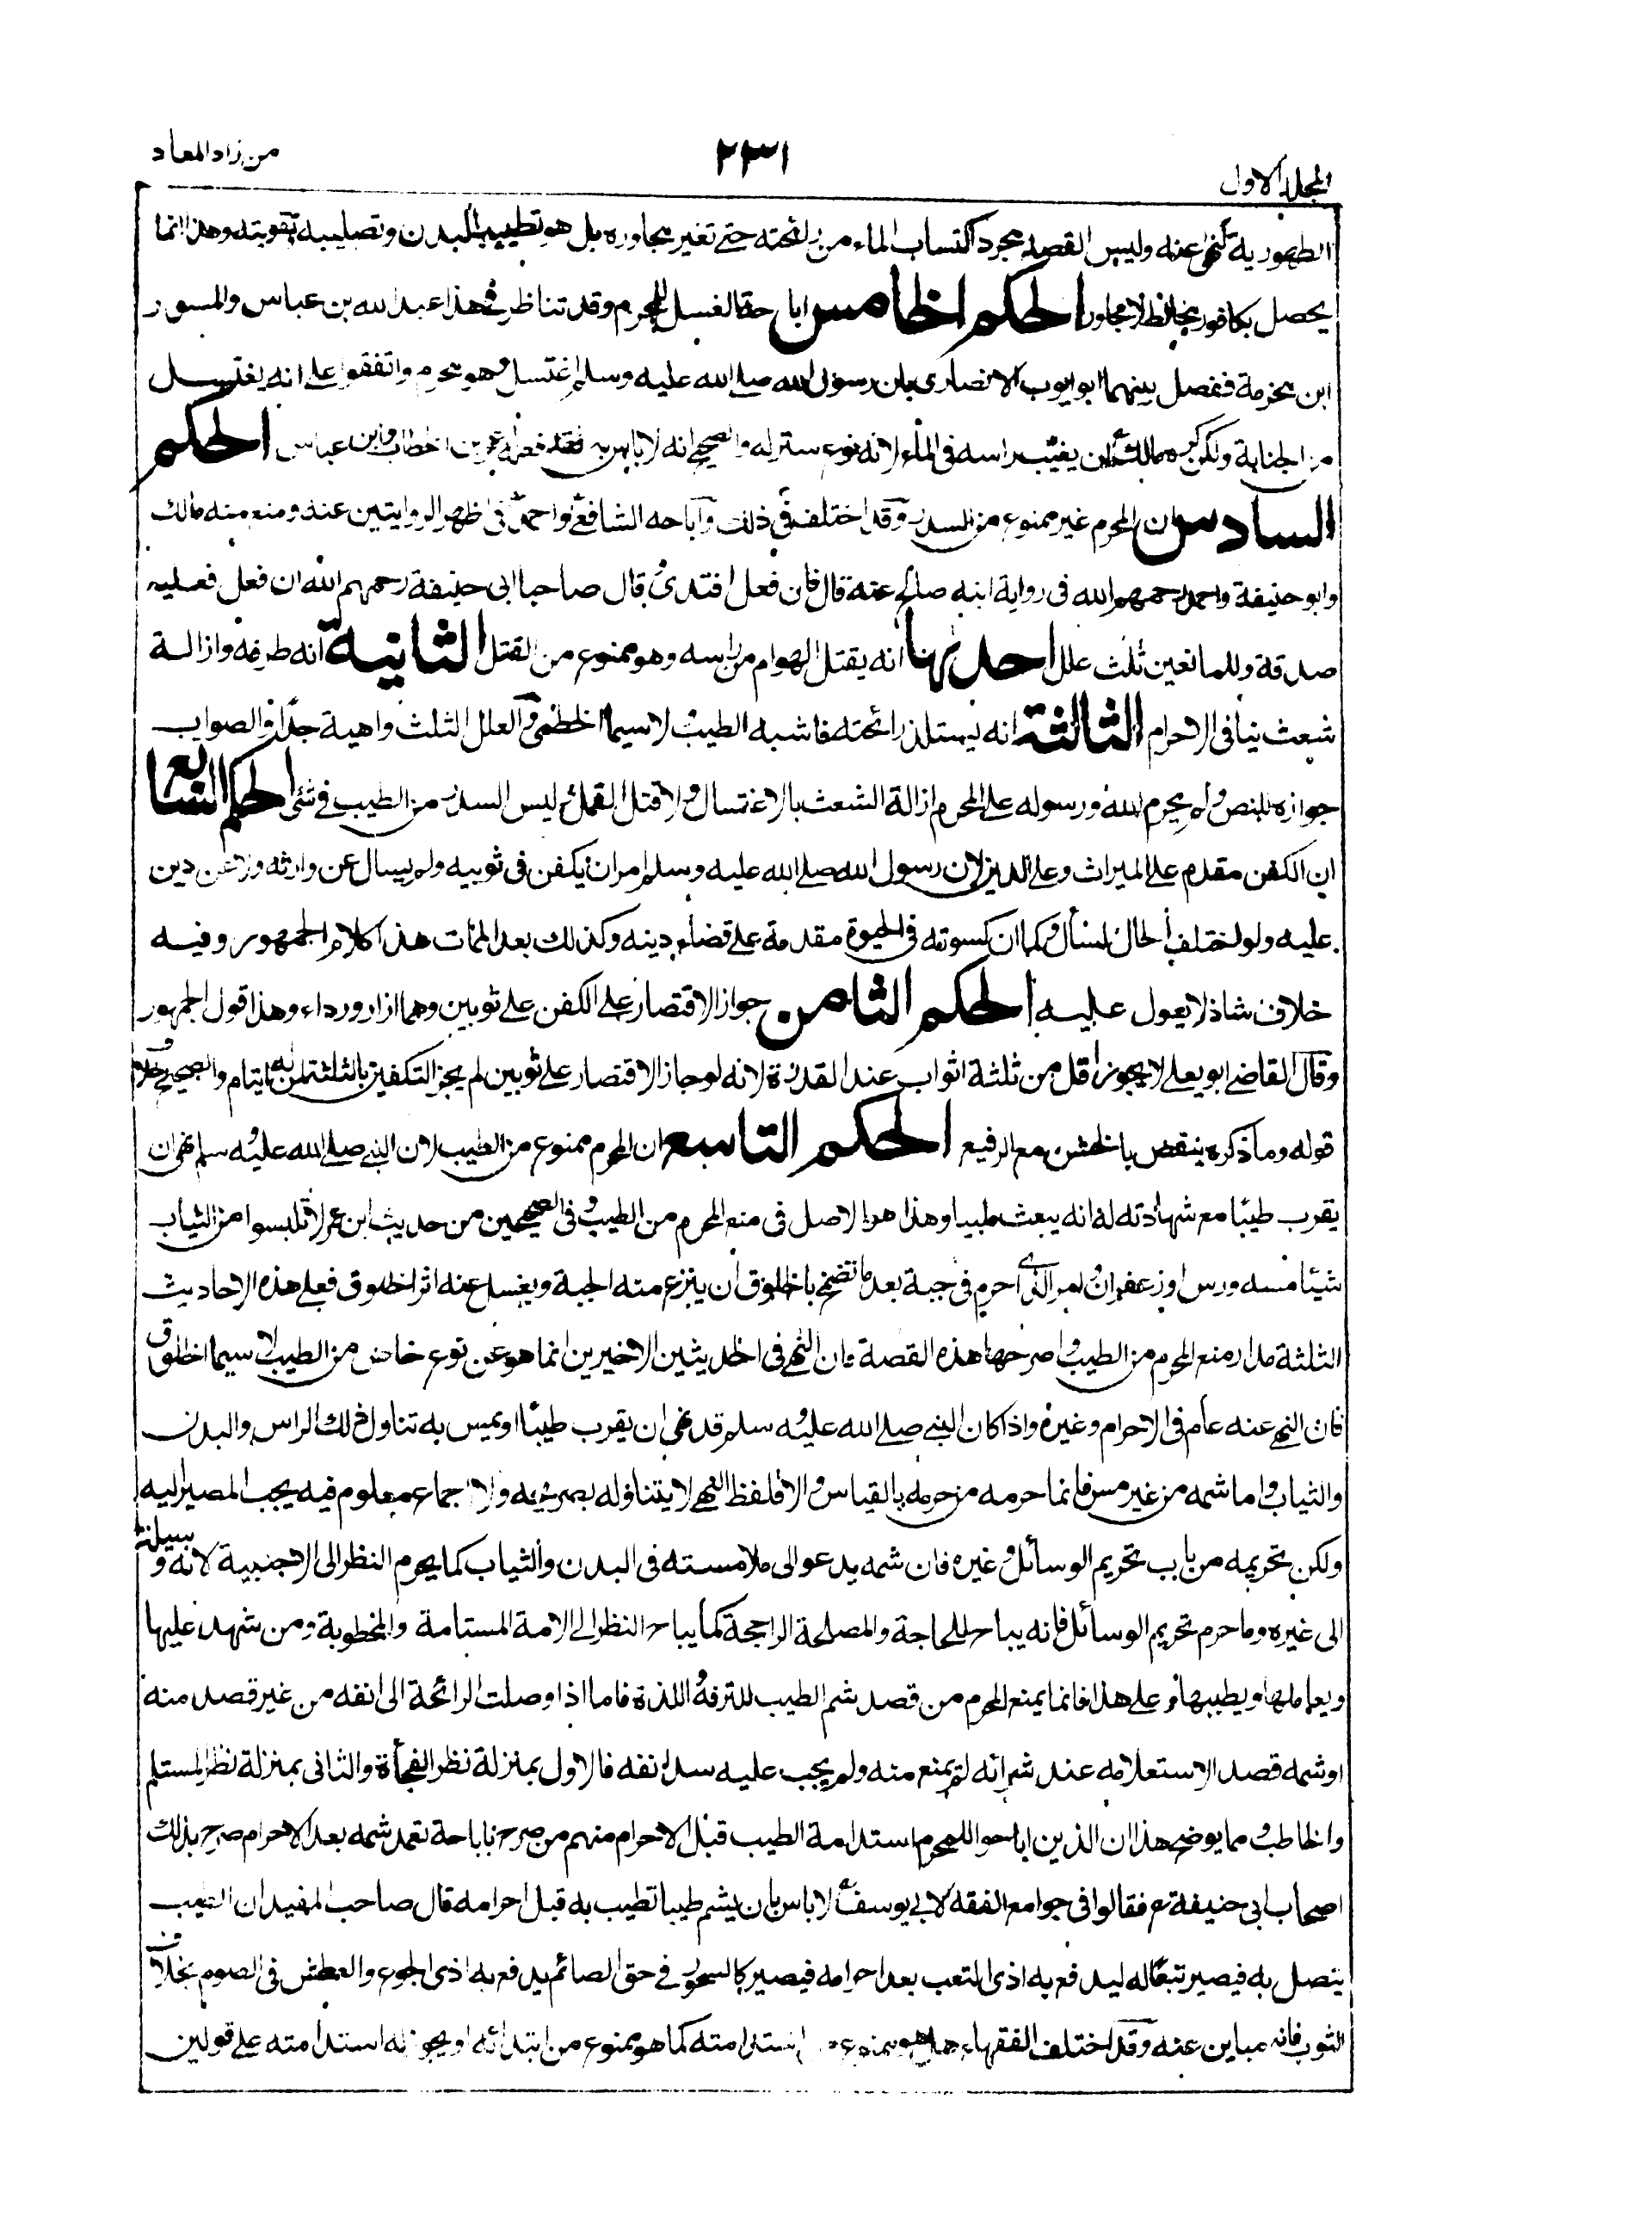 المجلد الاول
٢٣١
من زاد المعاد
الطهورية لنهى عنه وليس القصد مجرد اكتساب الماء من رائحته حتى تغير مجاوره بل هو تطييب البدن وتصليبه وتقويته وهذا انما
يحصل بكافور مخالط لا مجاور الحكم الخامس اباحة الغسل للمحرم وقد تناظر فى هذا عبد الله بن عباس والمسور
ابن مخرمة ففصل بينهما ابو ايوب الانصارى بان رسول الله صلى الله عليه وسلم اغتسل وهو محرم واتفقوا على انه يغتسل
من الجنابة ولكن كره مالك ان يغيب راسه فى الماء لانه نوع ستر له والصحيح انه لا باس به فقد فعله عمر بن الخطاب وابن عباس الحكم
السادس ان المحرم غير ممنوع من السدر وقد اختلف فى ذلك واباحه الشافعى واحمد فى اظهر الروايتين عنه ومنع منه مالك
وابو حنيفة واحمد رحمهم الله فى رواية ابنه صالح عنه قال فان فعل افتدى وقال صاحبا ابى حنيفة رحمهم الله ان فعل فعليه
صدقة وللمانعين ثلث علل احدىها انه يقتل الهوام من راسه وهو ممنوع من القتل الثانية انه طرفه وازالة
شعث ينافى الاحرام الثالثة انه يستلذ رائحته فاشبه الطيب لا سيما الخطمى والعلل الثلث واهية جدا والصواب
جوازه للنص ولم يحرم الله ورسوله على المحرم ازالة الشعث بالاغتسال ولا قتل القمل وليس السدر من الطيب فى شئ الحكم السابع
ان الكفن مقدم على الميراث وعلى الدين لان رسول الله صلى الله عليه وسلم امر ان يكفن فى ثوبيه ولم يسال عن وارثه ولا عن دين
عليه ولو اختلف الحال لسأل وكما ان كسوته فى الحيوة مقدمة على قضاء دينه وكذلك بعد الممات هذا كلام الجمهور وفيه
خلاف شاذ لا يعول عليه الحكم الثامن جواز الاقتصار على الكفن على ثوبين وهما ازار ورداء وهذا قول الجمهور
وقال القاضى ابو يعلى لا يجوز اقل من ثلثة اثواب عند القدرة لانه لو جاز الاقتصار على ثوبين لم يجز التكفين بالثلثة لمن له ايتام والصحيح خلاف
قوله وما ذكره ينقض بالخشن مع الرفيع الحكم التاسع ان المحرم ممنوع من الطيب لان النبى صلى الله عليه وسلم نهى ان
يقرب طيبا مع شهادته له انه يبعث ملبيا وهذا هو الاصل فى منع المحرم من الطيب وفى الصحيحين من حديث ابن عمر لا تلبسوا من الثياب
شيئا مسه ورس او زعفران وامر الذى احرم فى جبة بعد ما تضمخ بالخلوق ان ينزع منه الجبة ويغسل عنه اثر الخلوق فعلى هذه الاحاديث
الثلثة مدار منع المحرم من الطيب واصرحها هذه القصة فان النهى فى الحديثين الاخيرين انما هو عن نوع خاص من الطيب لا سيما الخلوق
فان النهى عنه عام فى الاحرام وغيره واذا كان النبى صلى الله عليه وسلم قد نهى ان يقرب طيبا او يمس به تناول ذلك الراس والبدن
والثياب واما شمه من غير مس فانما حرمه من حرمه بالقياس والا فلفظ النهى لا يتناوله بصريحه ولا اجماع معلوم فيه يجب المصير اليه
ولكن تحريمه من باب تحريم الوسائل وغيره فان شمه يدعو الى ملامسته فى البدن والثياب كما يحرم النظر الى الاجنبية لانه وسيلة
الى غيره وما حرم تحريم الوسائل فانه يباح للحاجة والمصلحة الراجحة كما يباح النظر الى الامة المستامة والمخطوبة ومن شهد عليها
ويعاملها ويطببها وعلى هذا فانما يمنع المحرم من قصد شم الطيب للترفه واللذة فاما اذا وصلت الرائحة الى انفه من غير قصد منه
او شمه قصد الاستعلامه عند شرائه لم يمنع منه ولم يجب عليه سد انفه فالاول بمنزلة نظر الفجأة والثانى بمنزلة نظر المستام
والخاطب ومما يوضح هذا ان الذين اباحوا للمحرم استدامة الطيب قبل الاحرام منهم من صرح باباحة تعمد شمه بعد الاحرام صرح بذلك
اصحاب ابى حنيفة فقالوا فى جوامع الفقه لابى يوسف لا باس بان يشم طيبا تطيب به قبل احرامه قال صاحب المفيد ان الطيب
يتصل به فيصير تبعا له ليدفع به اذى التعب بعد احرامه فيصير كالسحور فى حق الصائم يدفع به اذى الجوع والعطش فى الصوم بخلاف
الثوب فانه مباين عنه وقد اختلف الفقهاء هل هو ممنوع من استدامته كما هو ممنوع من ابتدائه او يجوز له استدامته على قولين